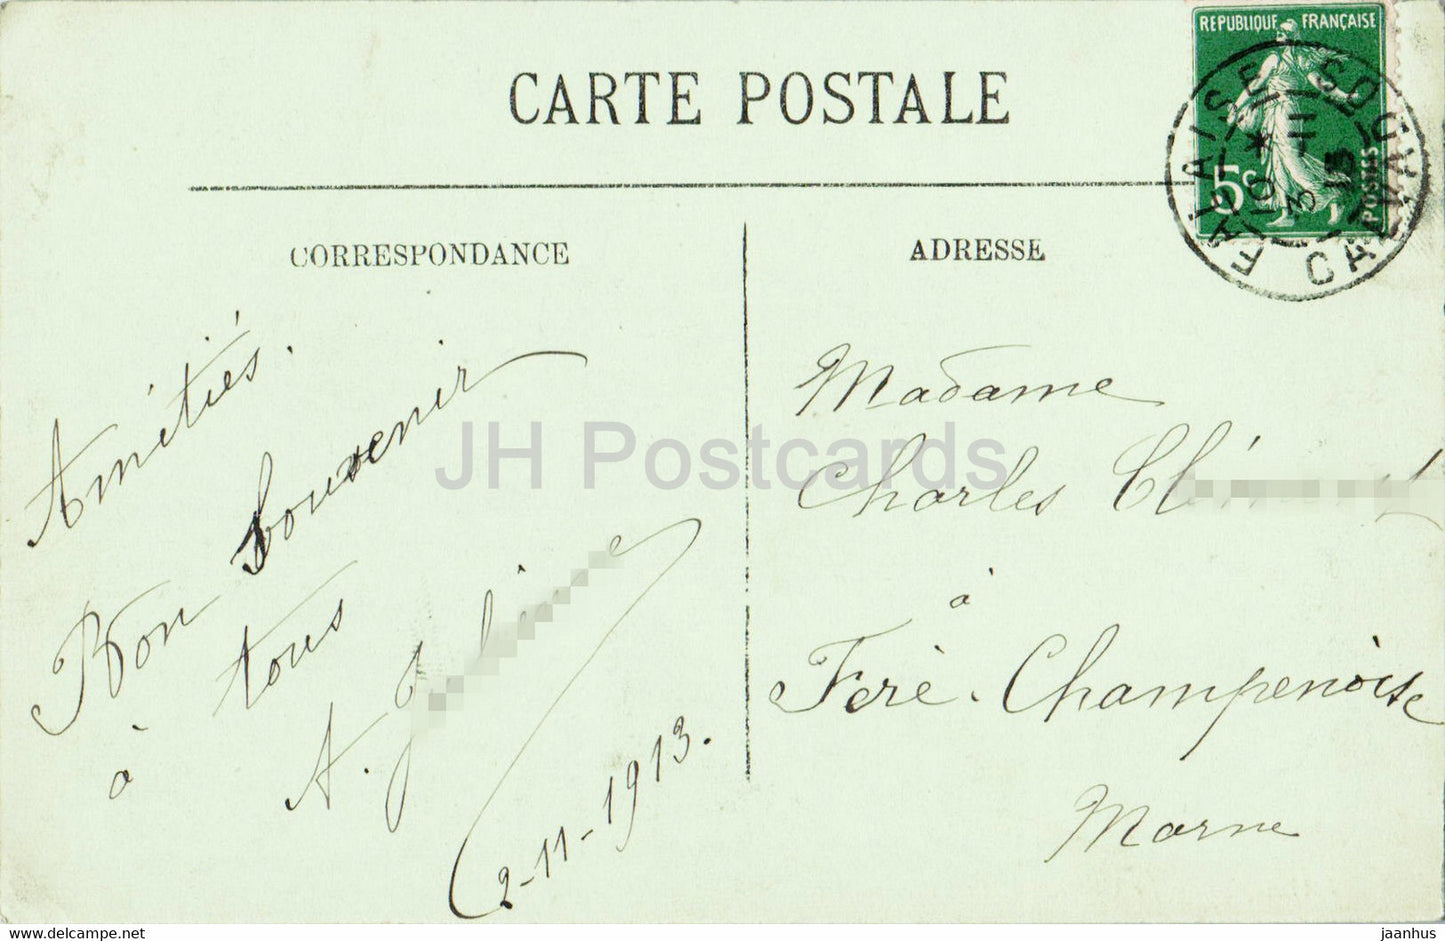 CARTE POSTALE
REPUBLIQUE FRANÇAISE
5c
POSTES
FALAISE SOUS CALVADOS
3 11 13
CORRESPONDANCE
Amitiés.
Bon Souvenir
à tous
A.
2-11-1913.
ADRESSE
Madame
Charles
à
Fère-Champenoise
Marne
JH Postcards
www.delcampe.net
jaanhus